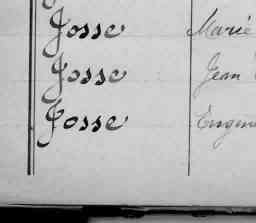 Josse Marie
Josse Jean
Josse